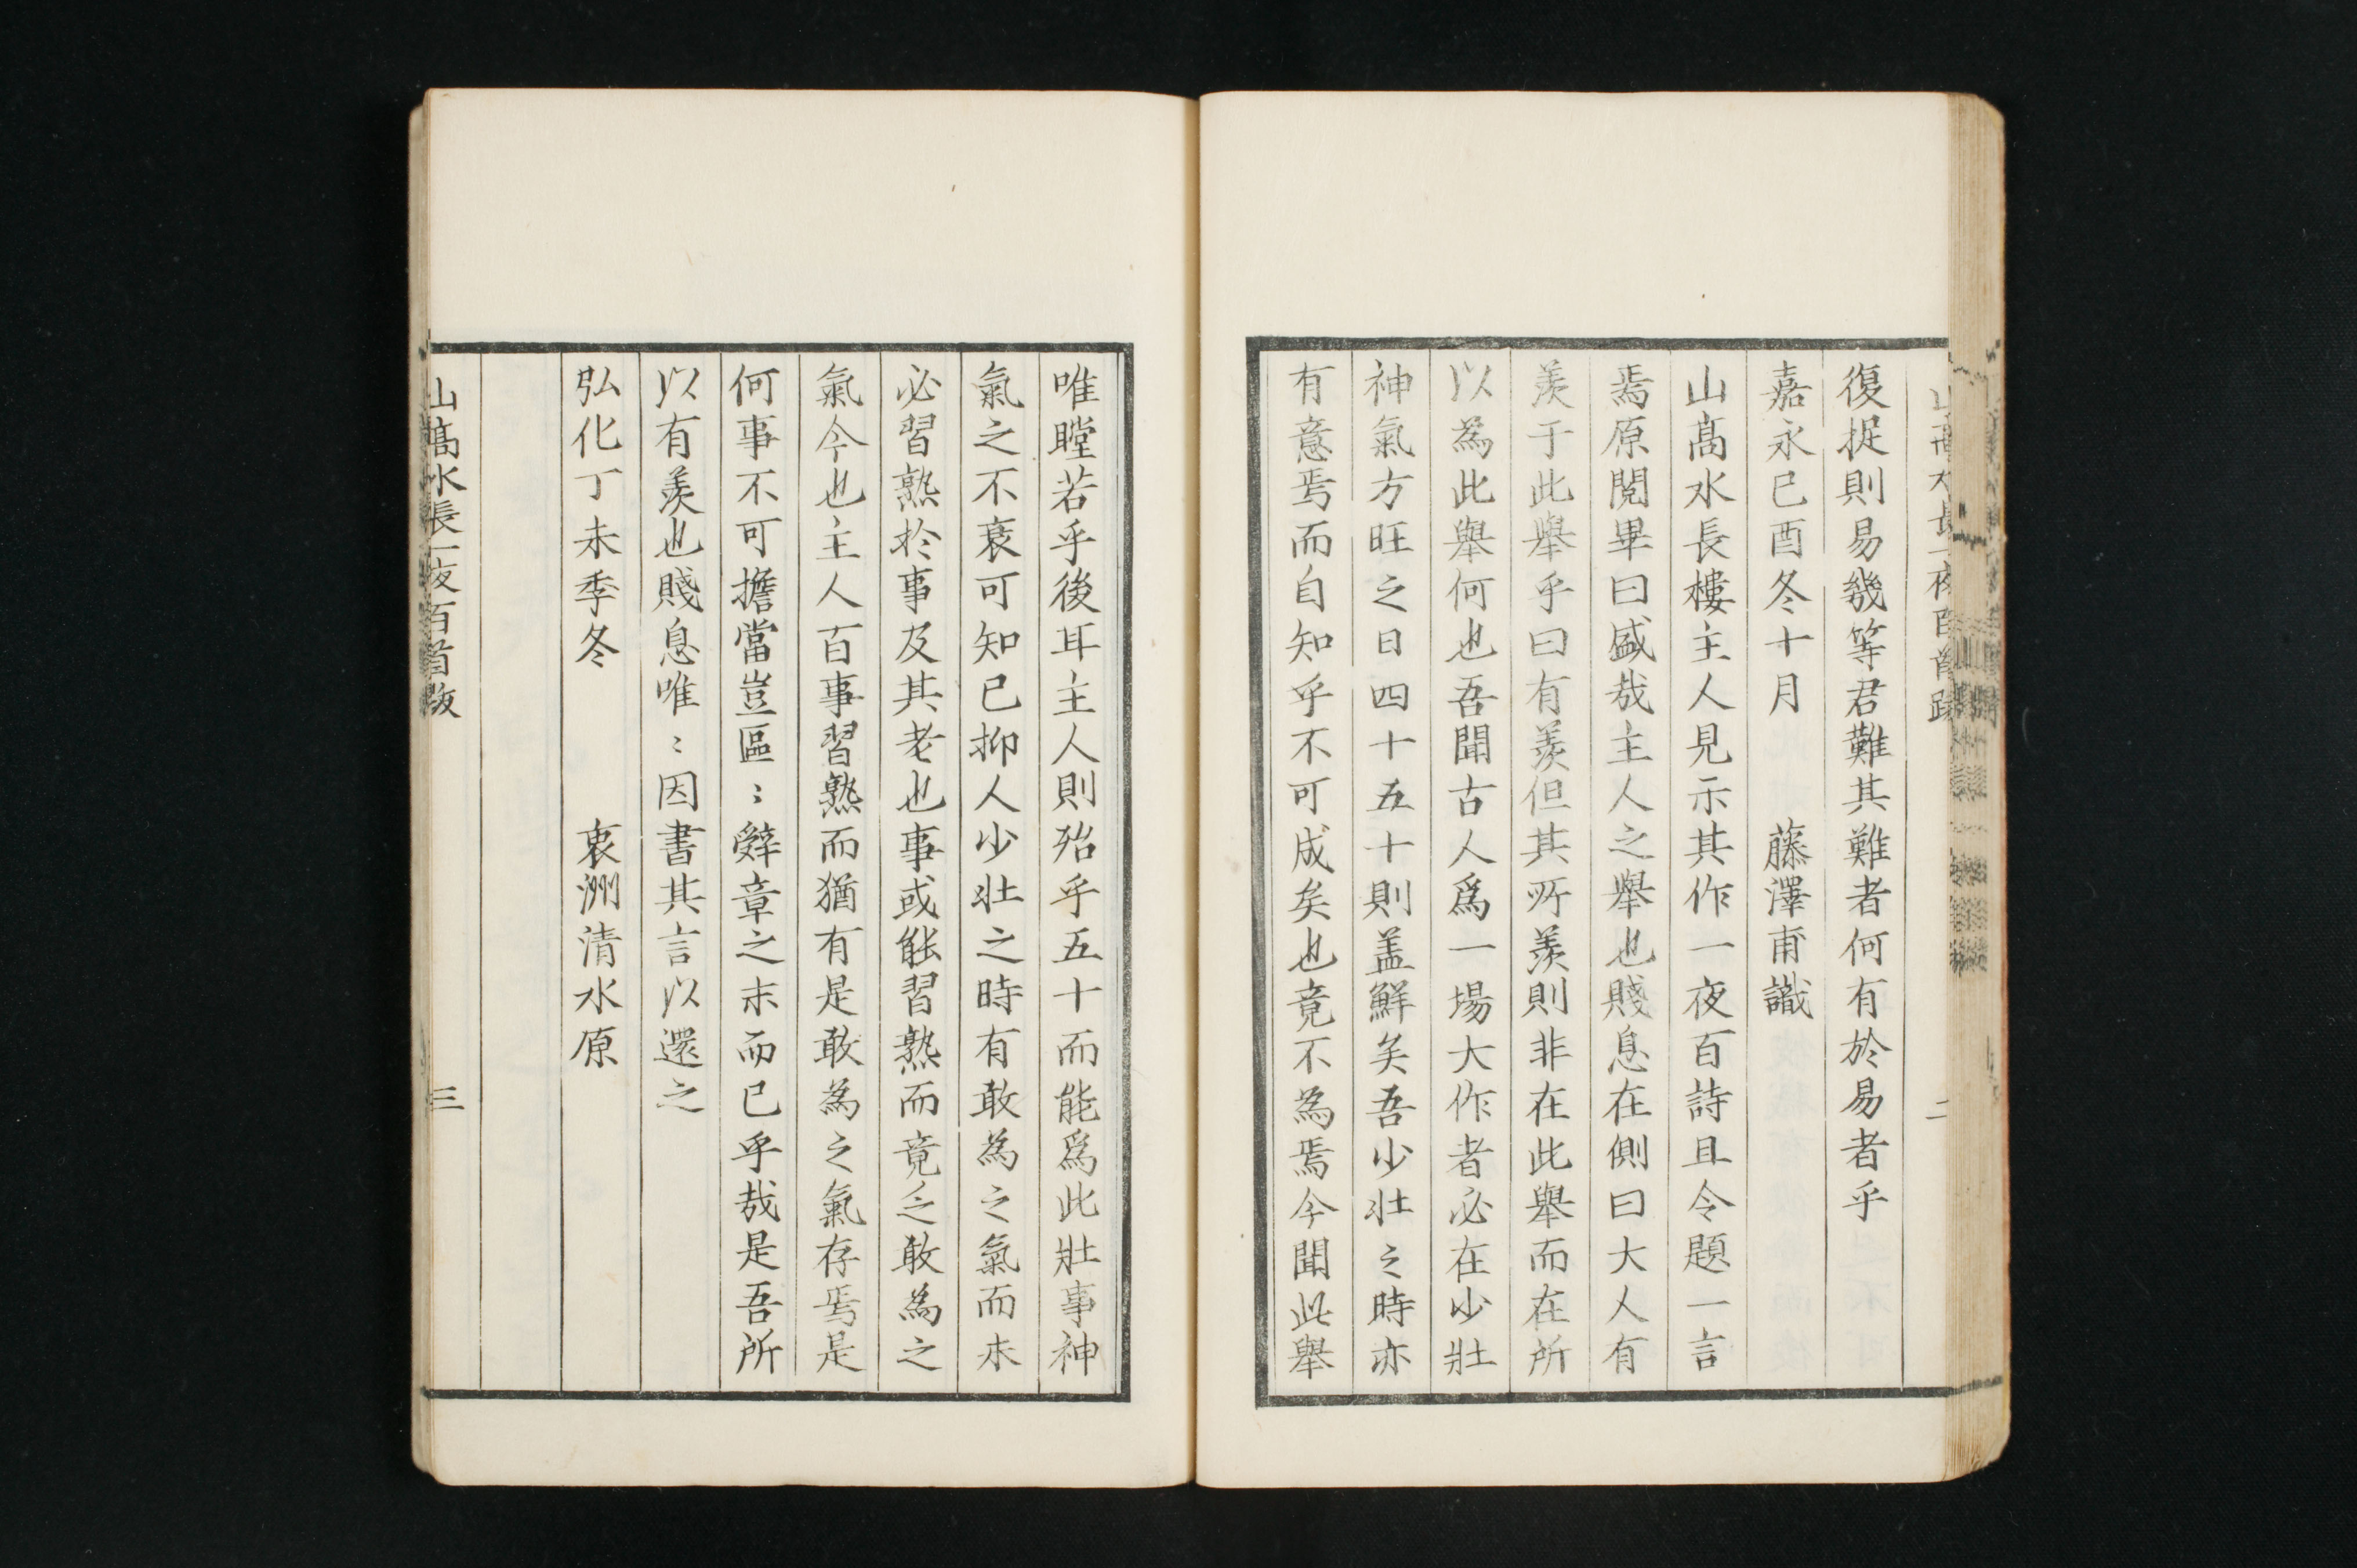 復捉則易幾等君難其難者何有於易者乎
嘉永己酉冬十月　藤澤甫識
山髙水長樓主人見示其作一夜百詩且令題一言
焉原閱畢曰盛哉主人之舉也賤息在側曰大人有
羨于此舉乎曰有羨但其所羨則非在此舉而在所
以為此舉何也吾聞古人爲一場大作者必在少壯
神氣方旺之日四十五十則蓋鮮矣吾少壯之時亦
有意焉而自知乎不可成矣也竟不為焉今聞此舉
唯瞠若乎後耳主人則殆乎五十而能爲此壯事神
氣之不衰可知已抑人少壯之時有敢為之氣而未
必習熟於事及其老也事或能習熟而竟乏敢為之
氣今也主人百事習熟而猶有是敢為之氣存焉是
何事不可擔當豈區〻辭章之末而已乎哉是吾所
以有羨也賤息唯〻因書其言以還之
弘化丁未季冬　衷洲清水原
山髙水長一夜百首跋　三